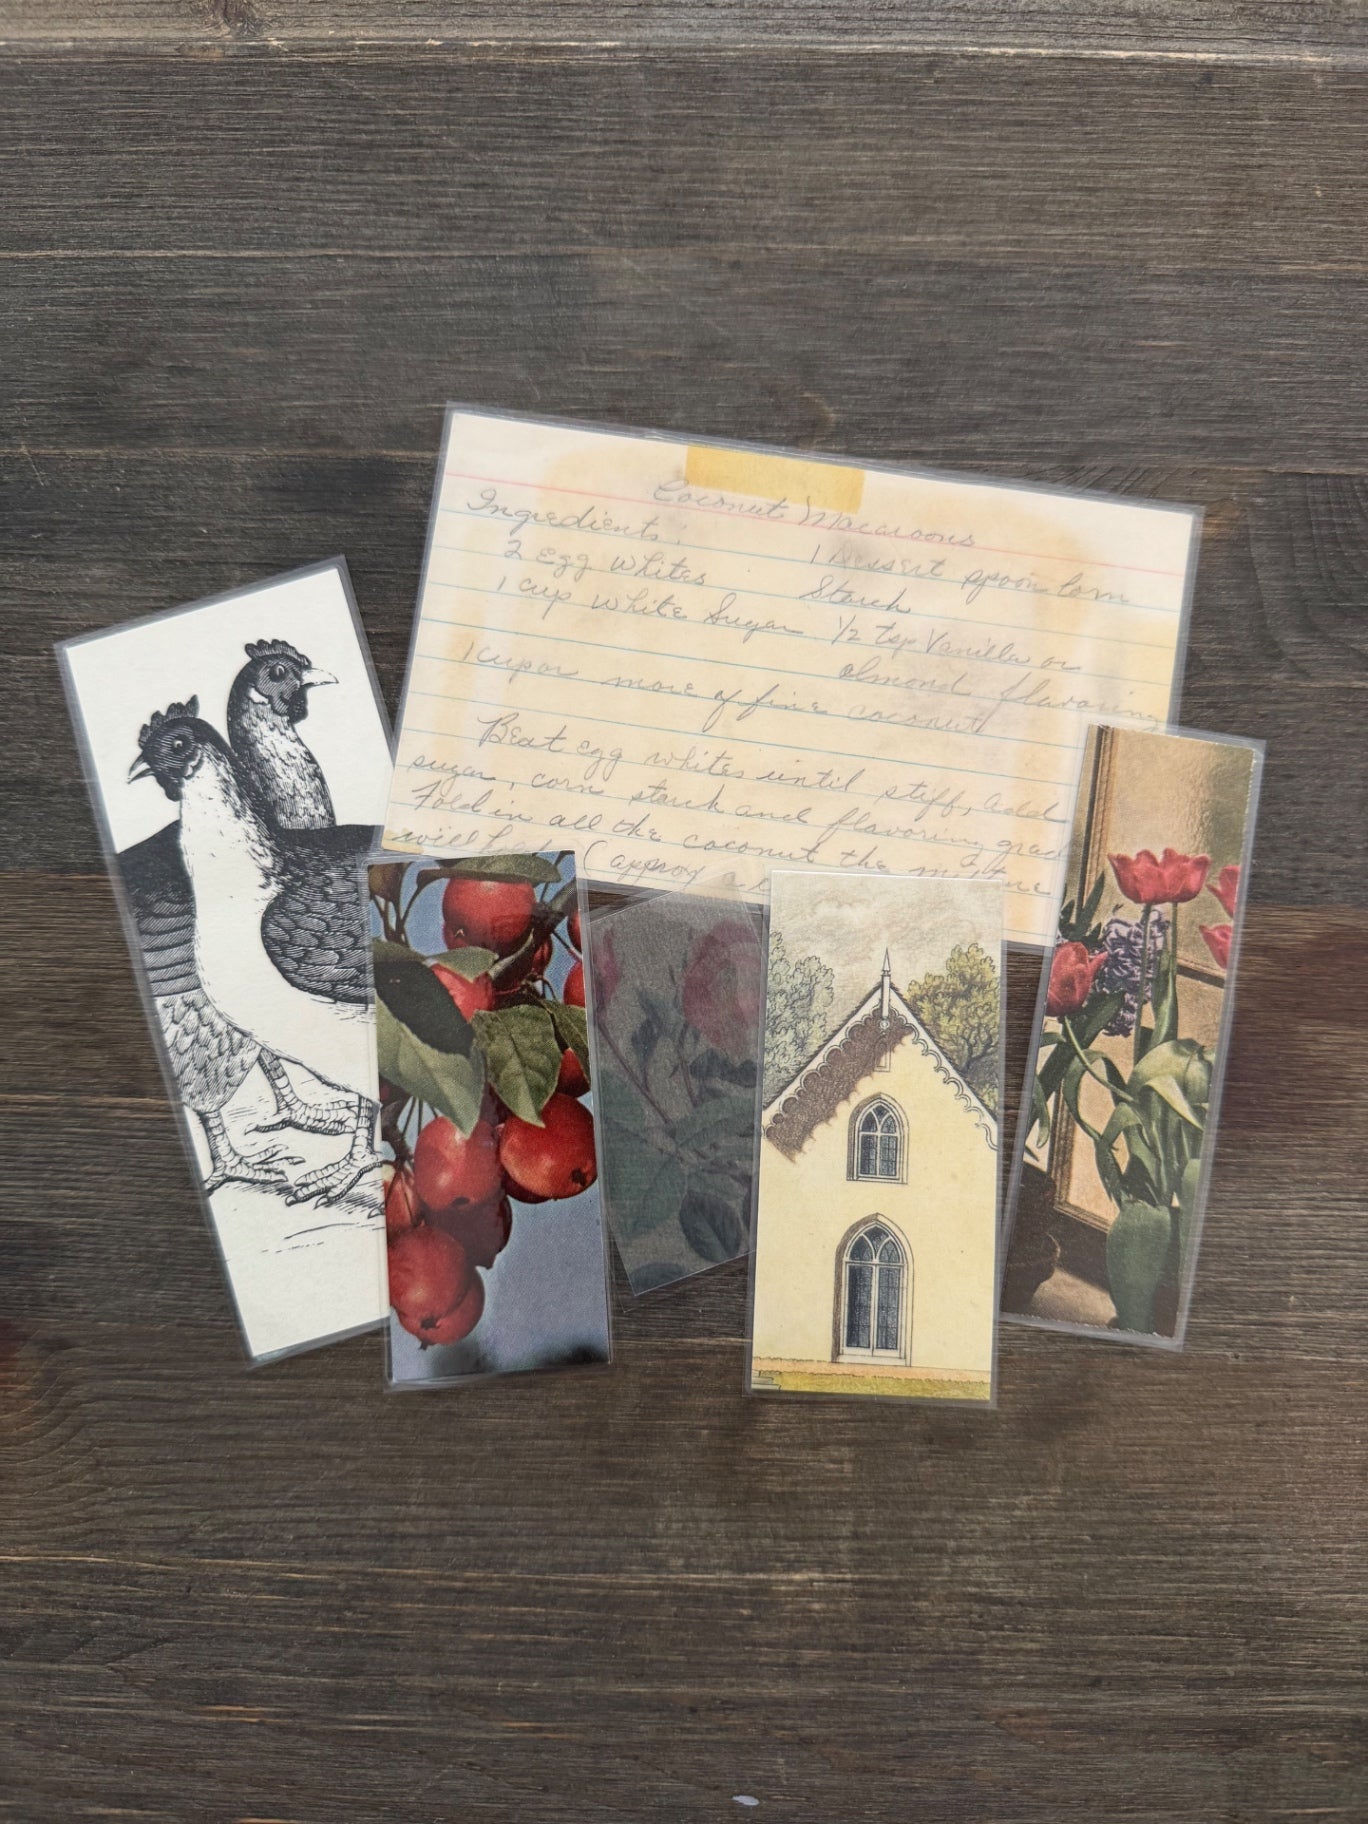 Coconut Macaroons
Ingredients:
2 Egg Whites
1 cup White Sugar
1 Dessert spoon Corn
Starch
1/2 tsp Vanilla or
almond flavoring
1 cup or more of fine coconut
Beat egg whites until stiff, Add
sugar, corn starch and flavoring
Fold in all the coconut the
will hold (approx